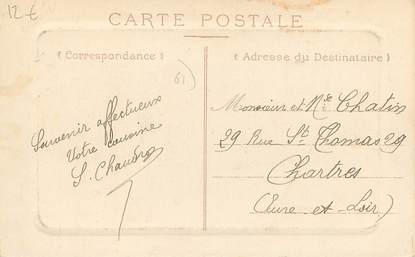 12 €
CARTE POSTALE
( Correspondance )
( Adresse du Destinataire )
61)
Souvenir affectueux
Votre cousine
S. Chaudra
Monsieur et Mme Chatin
29 Rue St Thomas 29
Chartres
(Eure-et-Loir)